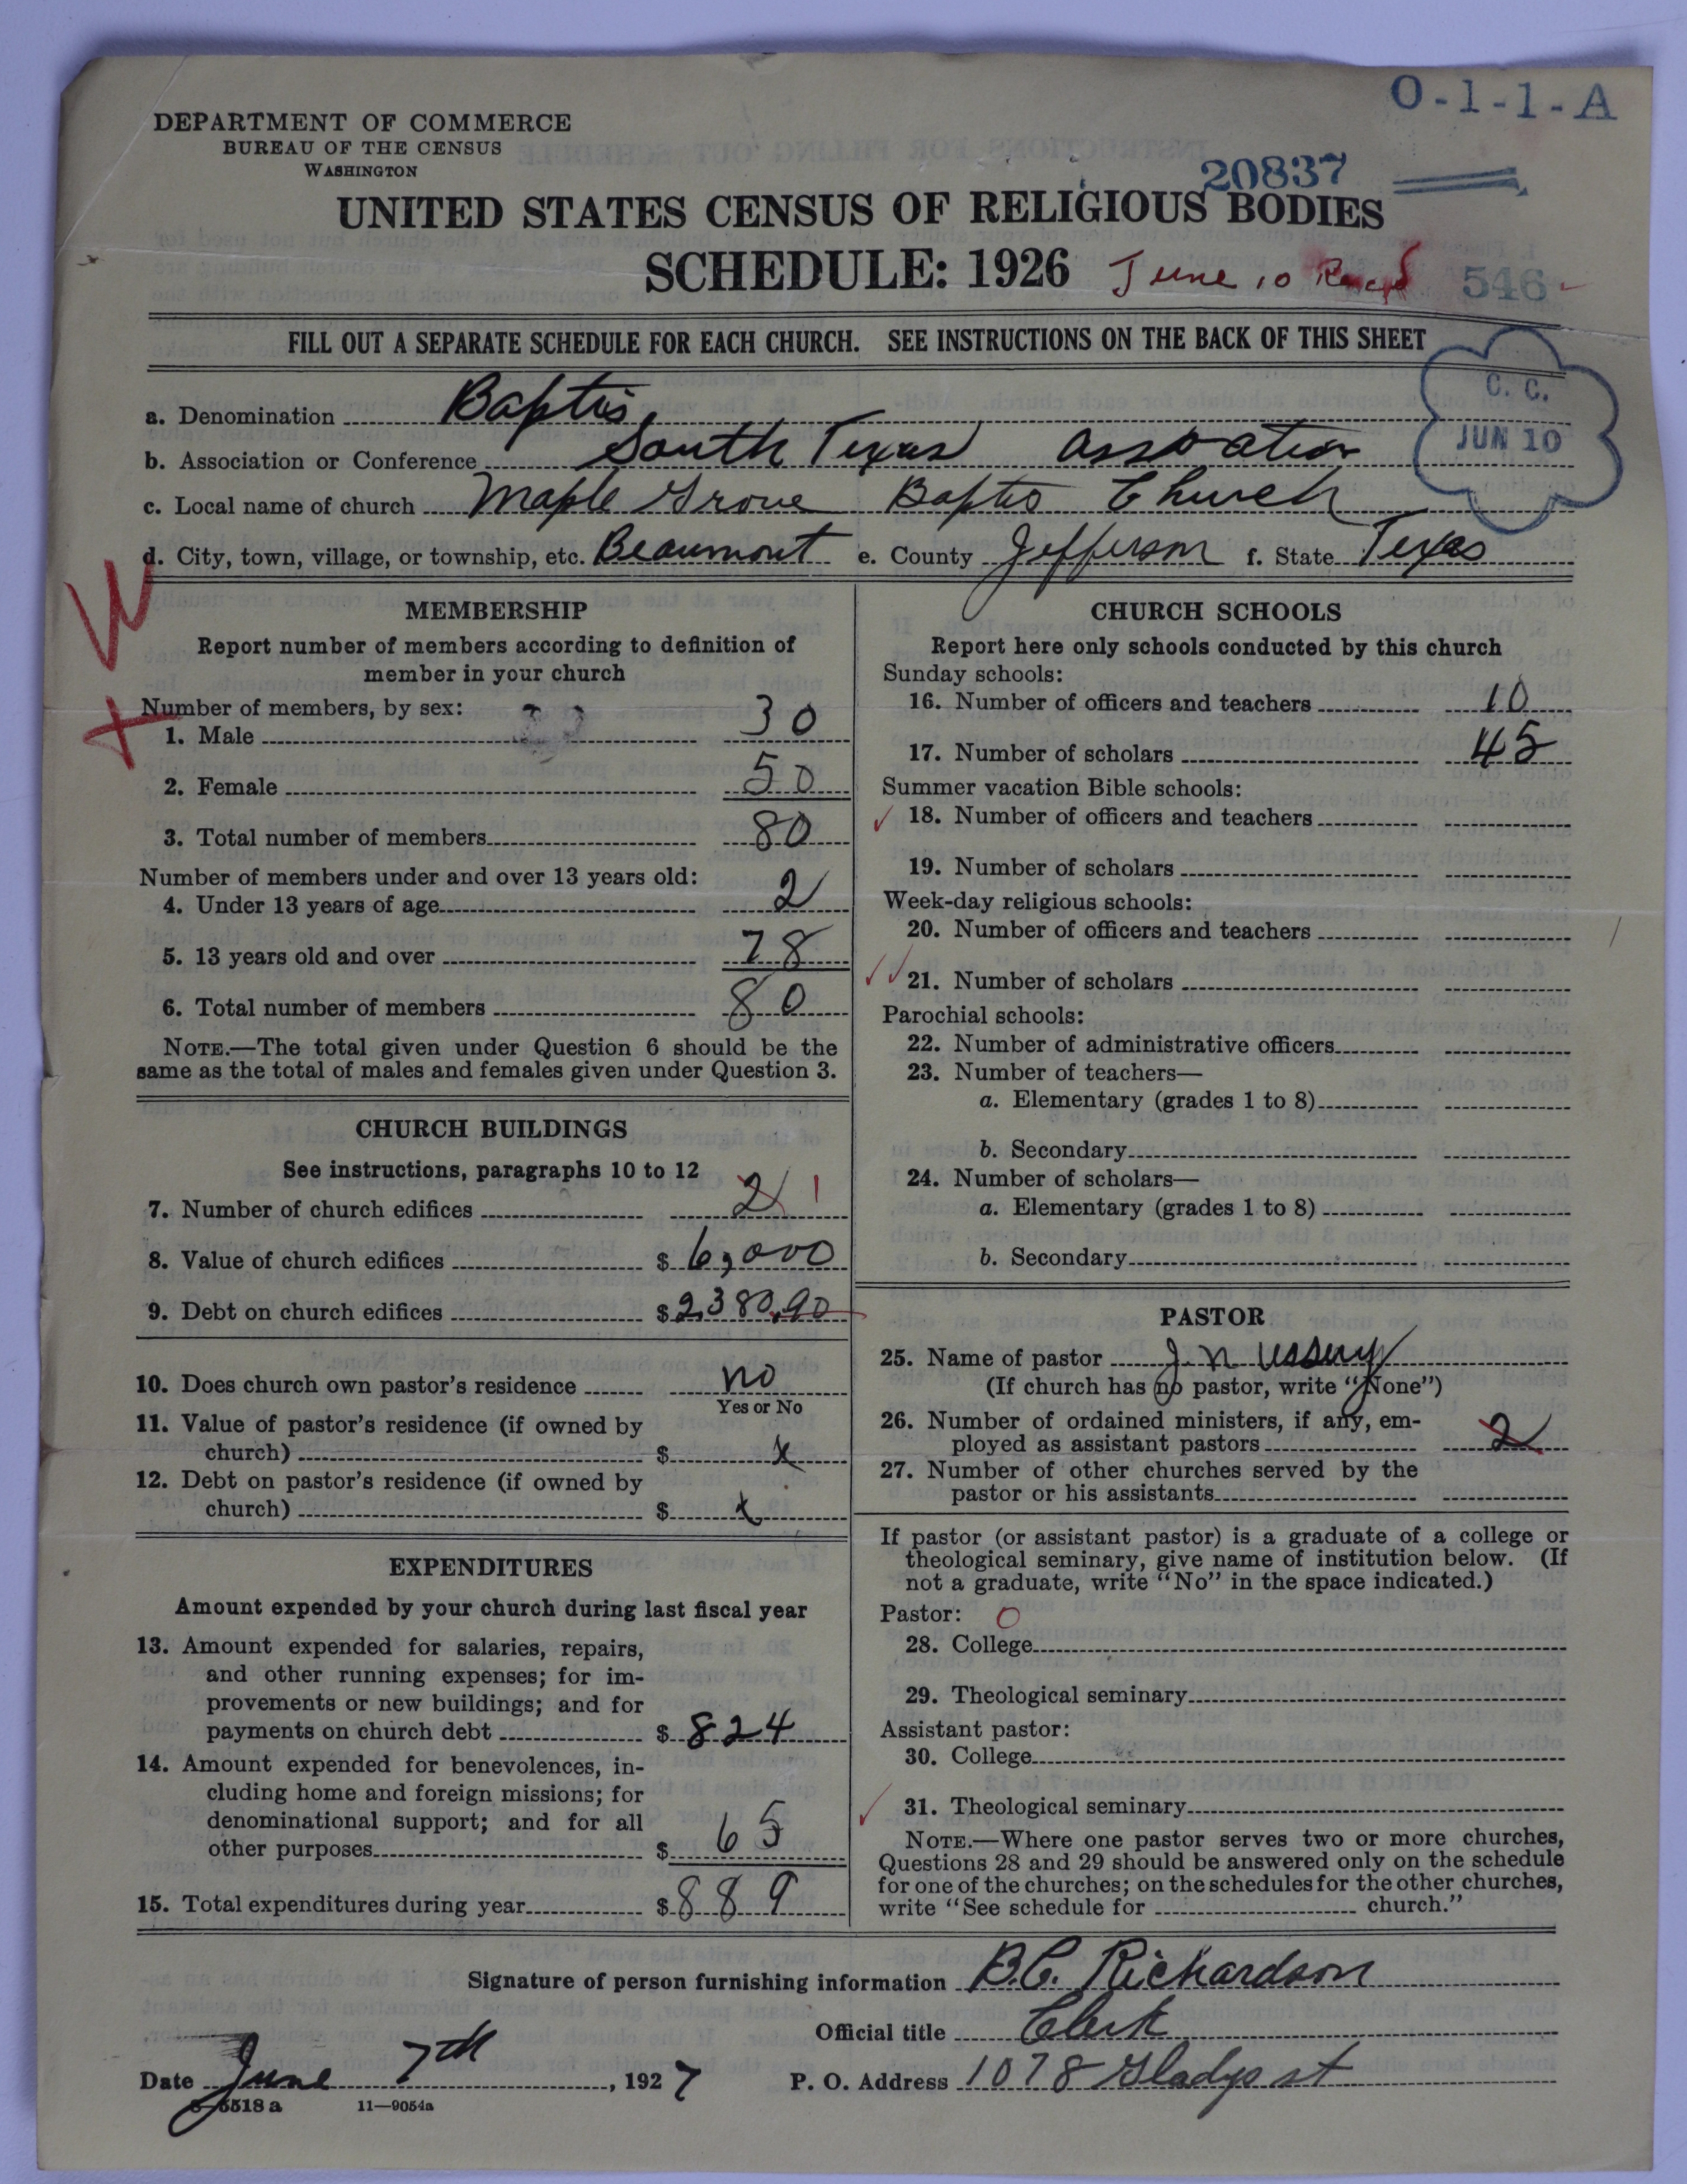 O-1-1-A
DEPARTMENT OF COMMERCE
BUREAU OF THE CENSUS
WASHINGTON
20837
UNITED STATES CENSUS OF RELIGIOUS BODIES
SCHEDULE: 1926 June 10 Recd 546
FILL OUT A SEPARATE SCHEDULE FOR EACH CHURCH. SEE INSTRUCTIONS ON THE BACK OF THIS SHEET
C. C.
JUN 10
a. Denomination Baptis
b. Association or Conference South Texas Assoation
c. Local name of church Maple Grove Baptis Church
d. City, town, village, or township, etc. Beaumont e. County Jefferson f. State Texas
MEMBERSHIP
Report number of members according to definition of
member in your church
Number of members, by sex:
1. Male 30
2. Female 50
3. Total number of members 80
Number of members under and over 13 years old:
4. Under 13 years of age 2
5. 13 years old and over 78
6. Total number of members 80
NOTE.—The total given under Question 6 should be the
same as the total of males and females given under Question 3.
CHURCH BUILDINGS
See instructions, paragraphs 10 to 12
7. Number of church edifices 2 1
8. Value of church edifices $ 6,000
9. Debt on church edifices $ 2,380.90
10. Does church own pastor's residence no
Yes or No
11. Value of pastor's residence (if owned by
church) $ x
12. Debt on pastor's residence (if owned by
church) $ x
EXPENDITURES
Amount expended by your church during last fiscal year
13. Amount expended for salaries, repairs,
and other running expenses; for im-
provements or new buildings; and for
payments on church debt $ 824
14. Amount expended for benevolences, in-
cluding home and foreign missions; for
denominational support; and for all
other purposes $ 65
15. Total expenditures during year $ 889
CHURCH SCHOOLS
Report here only schools conducted by this church
Sunday schools:
16. Number of officers and teachers 10
17. Number of scholars 45
Summer vacation Bible schools:
18. Number of officers and teachers
19. Number of scholars
Week-day religious schools:
20. Number of officers and teachers
21. Number of scholars
Parochial schools:
22. Number of administrative officers
23. Number of teachers—
a. Elementary (grades 1 to 8)
b. Secondary
24. Number of scholars—
a. Elementary (grades 1 to 8)
b. Secondary
PASTOR
25. Name of pastor J. N. Ussery
(If church has no pastor, write "None")
26. Number of ordained ministers, if any, em-
ployed as assistant pastors 2
27. Number of other churches served by the
pastor or his assistants
If pastor (or assistant pastor) is a graduate of a college or
theological seminary, give name of institution below. (If
not a graduate, write "No" in the space indicated.)
Pastor: O
28. College
29. Theological seminary
Assistant pastor:
30. College
31. Theological seminary
NOTE.—Where one pastor serves two or more churches,
Questions 28 and 29 should be answered only on the schedule
for one of the churches; on the schedules for the other churches,
write "See schedule for church."
Signature of person furnishing information B.C. Richardson
Official title Clerk
Date June 7th, 1927 P. O. Address 1078 Gladys st
8-5518 a 11—9054a